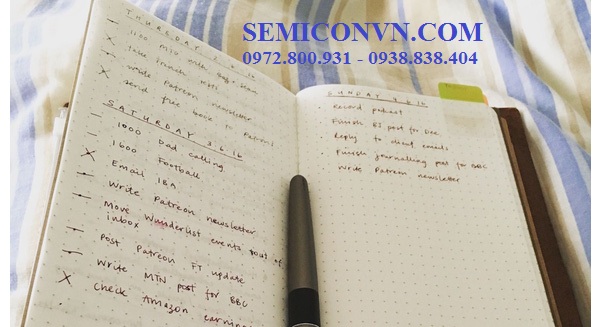 SEMICONVN.COM
0972.800.931 - 0938.838.404
THURSDAY 2.6.16
write Patreon newsletter
send free book to Patreon
SATURDAY 3.6.16
— 1000 Dad calling
× 1600 Football
× Email IBA
— Write Patreon newsletter
— Move Wunderlist events out of
inbox
— Post Patreon FT update
— Write MTN post for BBC
× Check Amazon earning
SUNDAY
• Record podcast
• Finish post for Dee
• Reply to client emails
• Finish journalling post for BBC
• Write Patreon newsletter